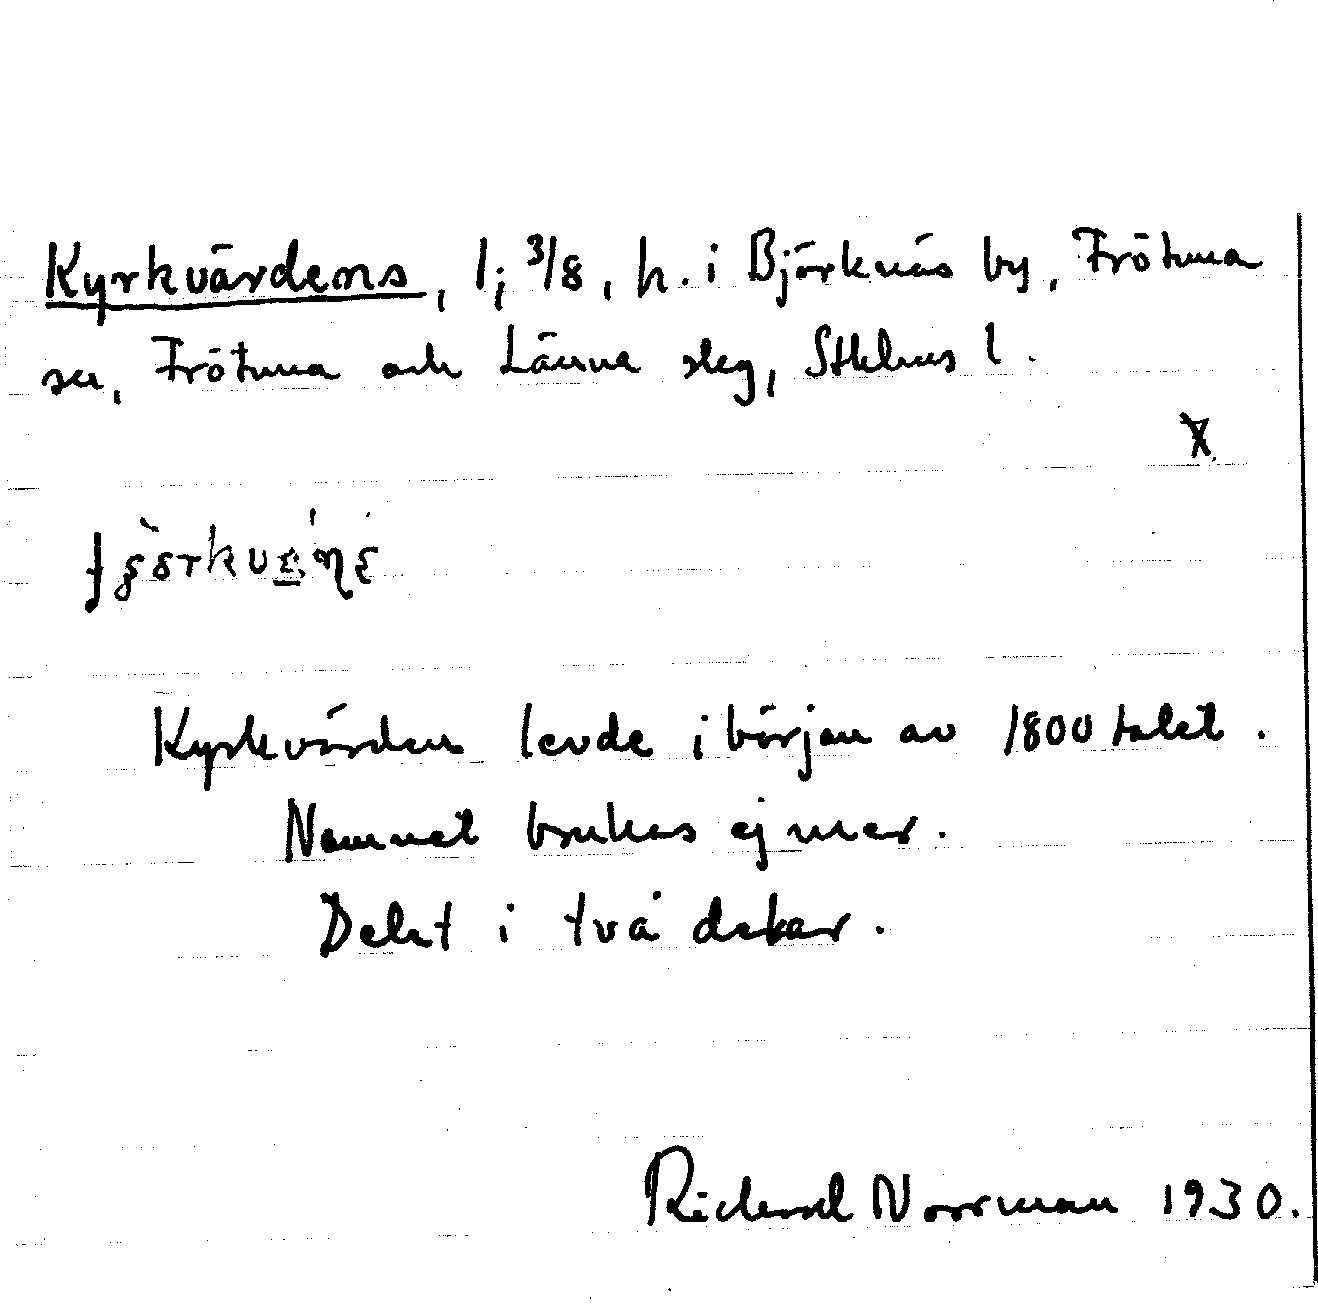 Kyrkvärdens, 1; 3/8, h. i Björknäs by, Frötuna
sn, Frötuna och Länna skg, Sthlms l.
X
Kyrkvärden levde i början av 1800 talet.
Namnet brukas ej mer.
Delat i två delar.
Richard Norrman 1930.